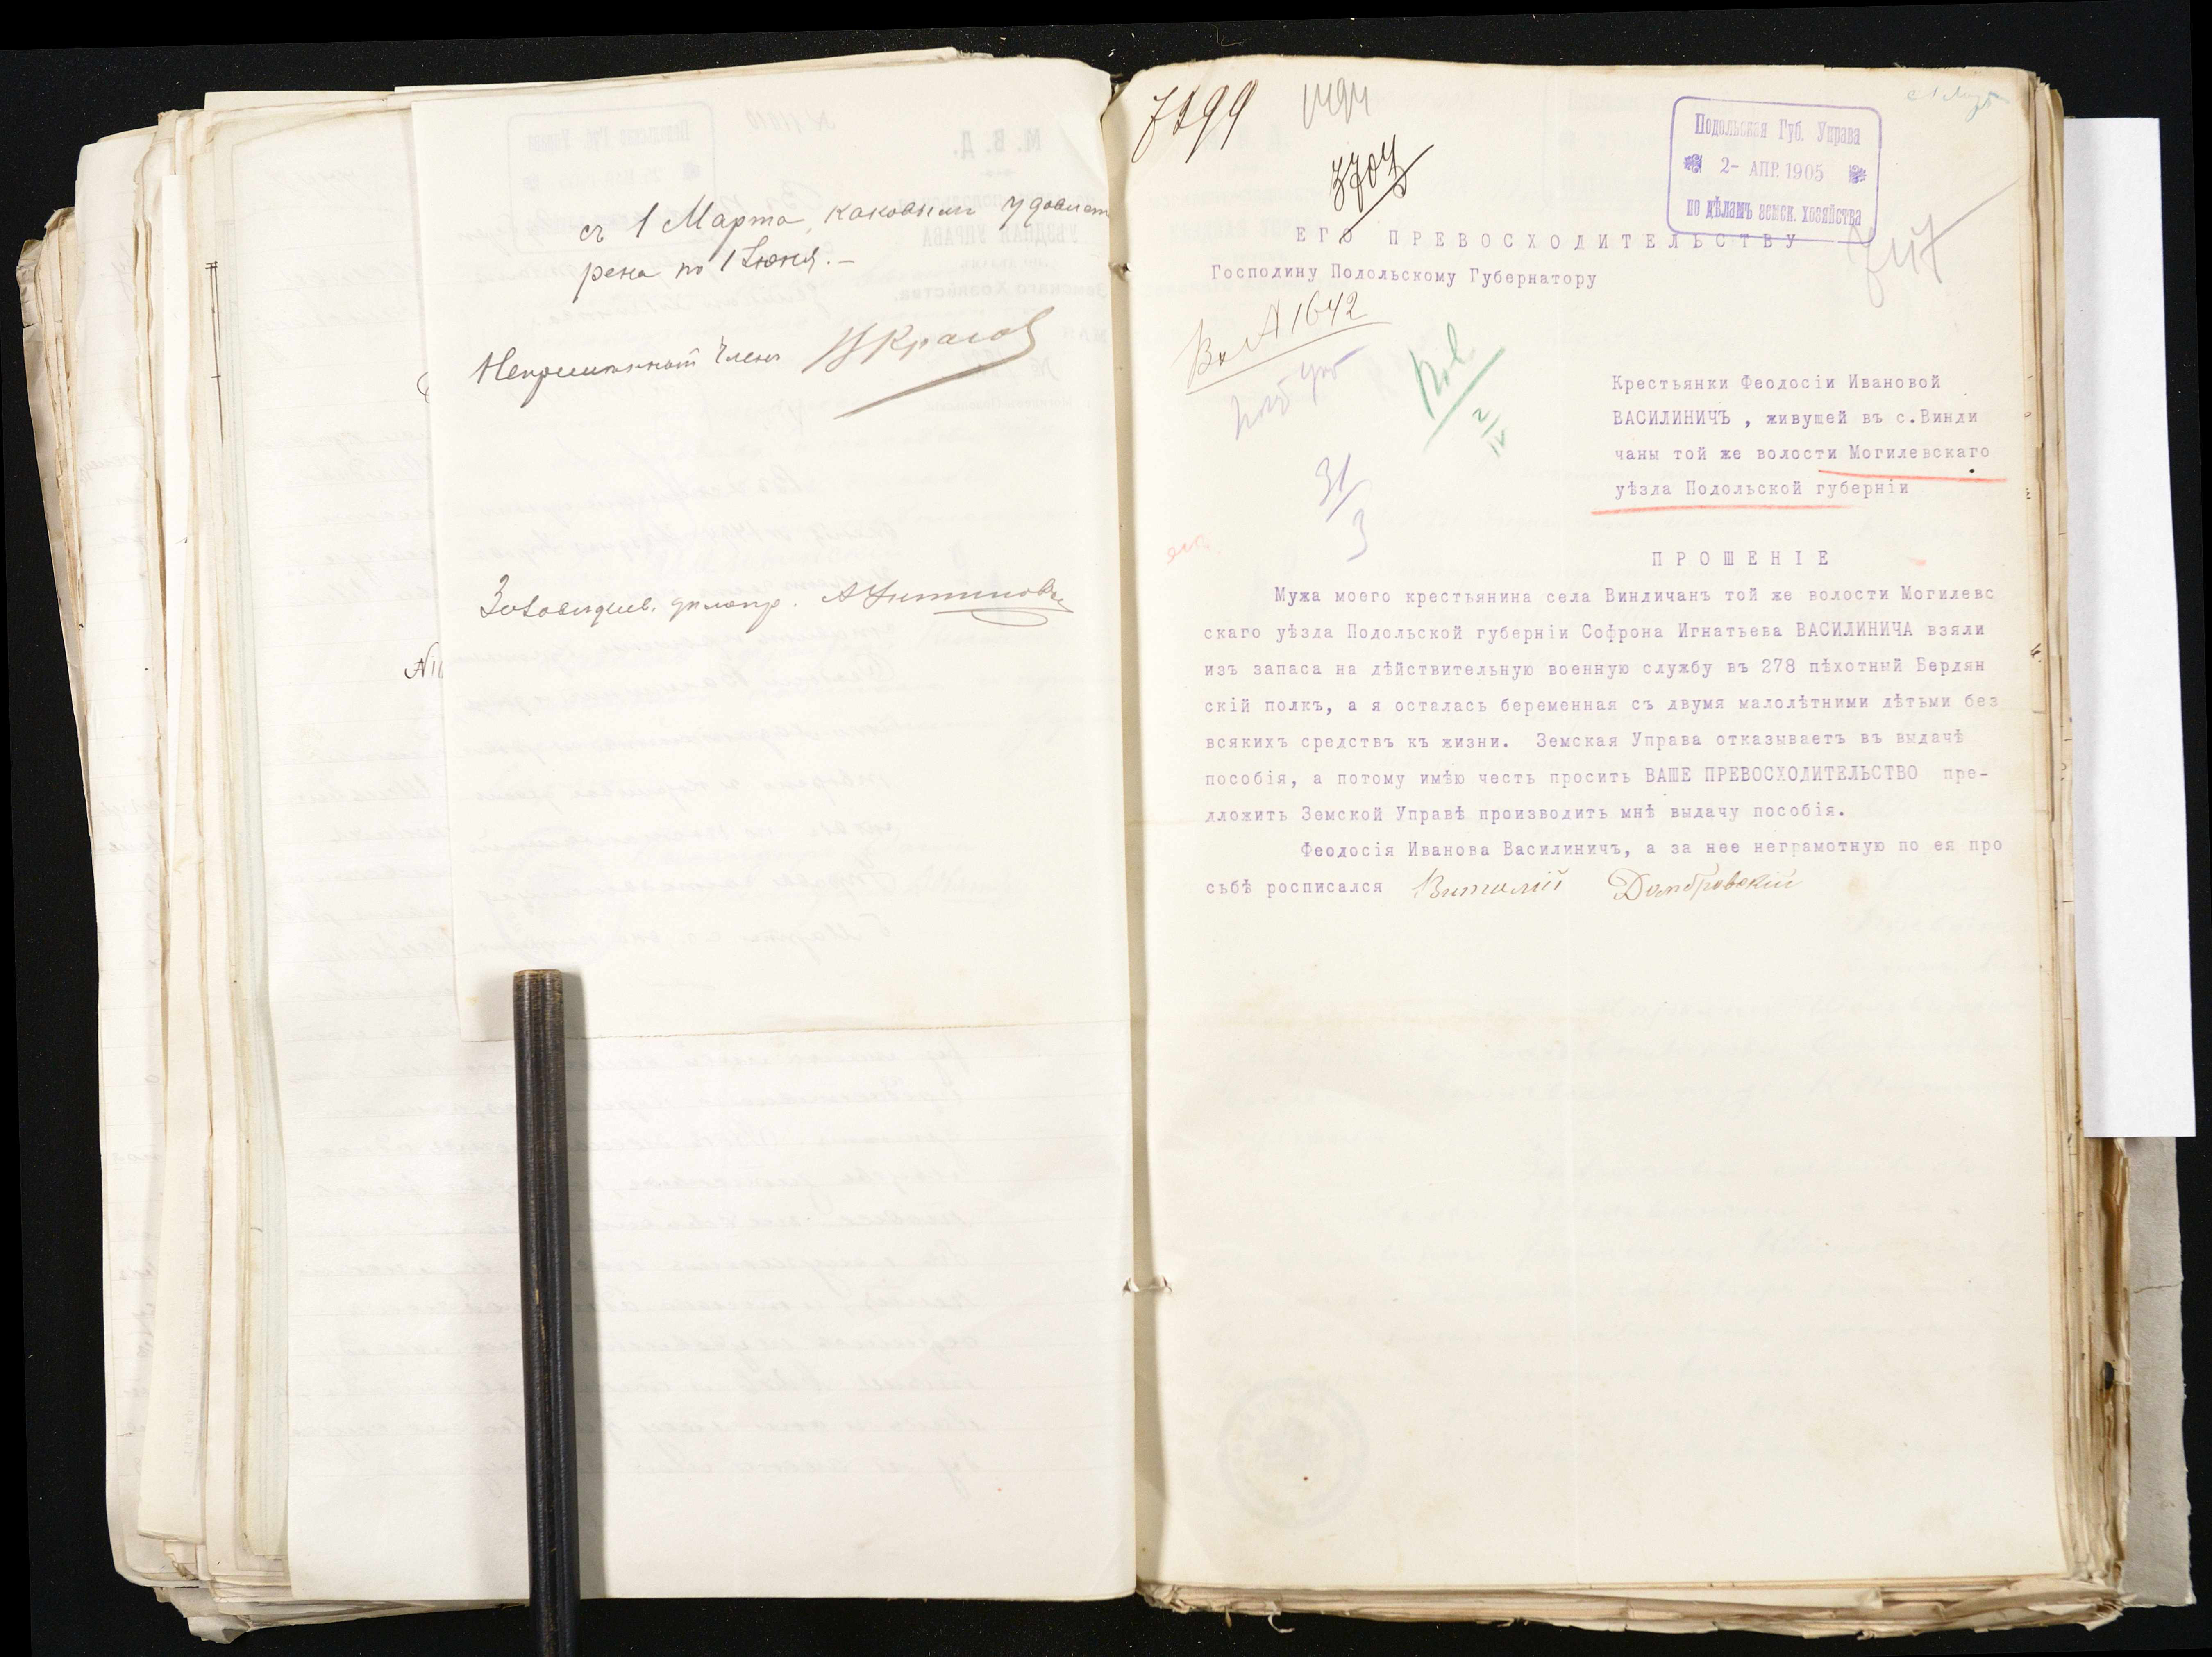 съ 1 Марта, каковым удовлет
рена по 1 Июня.-
Непремѣнный Членъ
7299
3704
Подольская Губ. Управа
2- АПР. 1905
по дѣламъ земск. хозяйства
ЕГО ПРЕВОСХОДИТЕЛЬСТВУ
Господину Подольскому Губернатору
Вх А 1642
31/3
Крестьянки Феодосіи Ивановой
ВАСИЛИНИЧЪ , живущей въ с.Винди
чаны той же волости Могилевскаго
уѣзда Подольской губерніи
ПРОШЕНІЕ
Мужа моего крестьянина села Виндичанъ той же волости Могилевс
скаго уѣзда Подольской губерніи Софрона Игнатьева ВАСИЛИНИЧА взяли
изъ запаса на дѣйствительную военную службу въ 278 пѣхотный Бердян
скій полкъ, а я осталась беременная съ двумя малолѣтними дѣтьми без
всякихъ средствъ къ жизни. Земская Управа отказываетъ въ выдачѣ
пособія, а потому имѣю честь просить ВАШЕ ПРЕВОСХОДИТЕЛЬСТВО пре-
дложить Земской Управѣ производить мнѣ выдачу пособія.
Феодосія Иванова Василиничъ, а за нее неграмотную по ея про
сьбѣ росписался Виталій Домбровскій